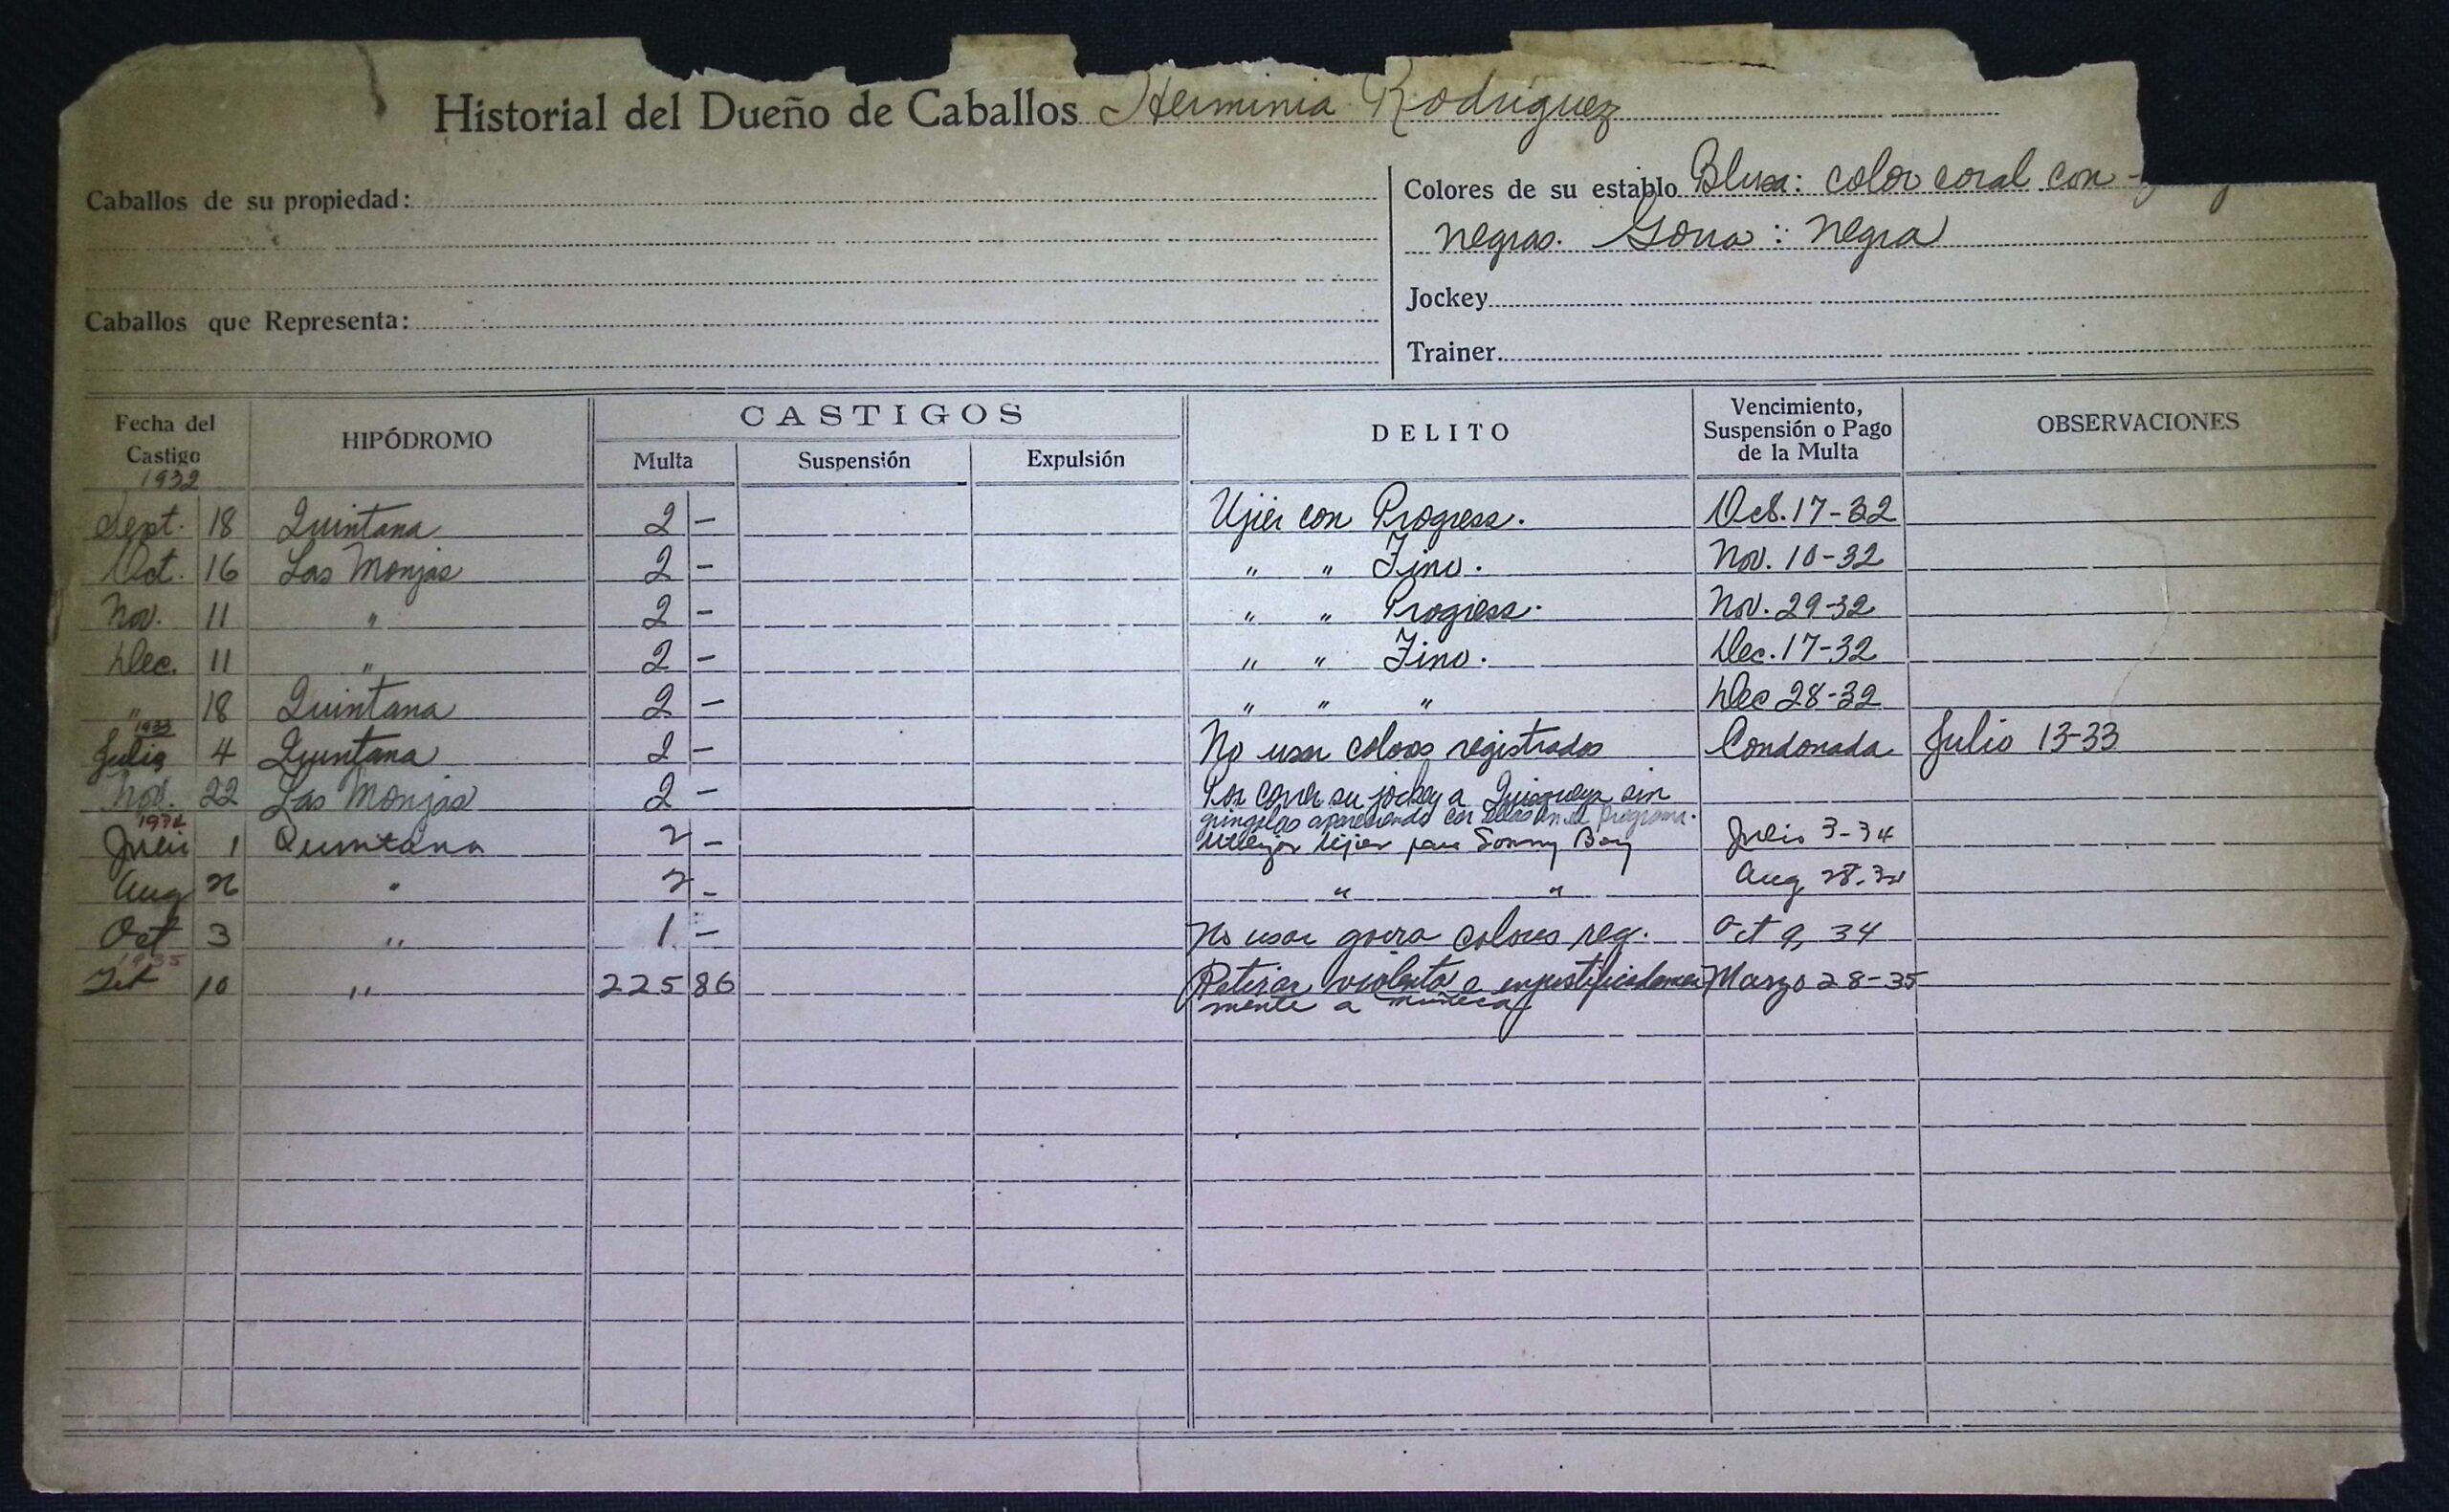 Historial del Dueño de Caballos Herminia Rodríguez
Caballos de su propiedad:
Colores de su establo Blusa: color coral con
negras. Gorra: negra
Jockey
Caballos que Representa:
Trainer
Fecha del Castigo
HIPÓDROMO
CASTIGOS
Multa
Suspensión
Expulsión
DELITO
Vencimiento,
Suspensión o Pago
de la Multa
OBSERVACIONES
1932
Sept. 18 Quintana 2 - Ujier con Progress. Oct. 17-32
Oct. 16 Las Monjas 2 - " " Fino. Nov. 10-32
Nov. 11 " 2 - " " Progress. Nov. 29-32
Dec. 11 " 2 - " " Fino. Dec. 17-32
" 18 Quintana 2 - " " " Dec 28-32
1933
Julio 4 Quintana 2 - No usar colores registrados Condonada Julio 13-33
Nov. 22 Las Monjas 2 - Por correr su jockey a Quisqueya sin
gringolas apareciendo con ellas en el programa.
1934
Julio 1 Quintana 2 - Utilizar Ujier para Sonny Boy Julio 3-34
Aug 26 " 2 - " " Aug 28-34
Oct 3 " 1 - No usar gorra colores reg. Oct 9, 34
1935
Feb 10 " 225 86 Retirar violenta e injustificadamen Marzo 28-35
mente a Muñeca